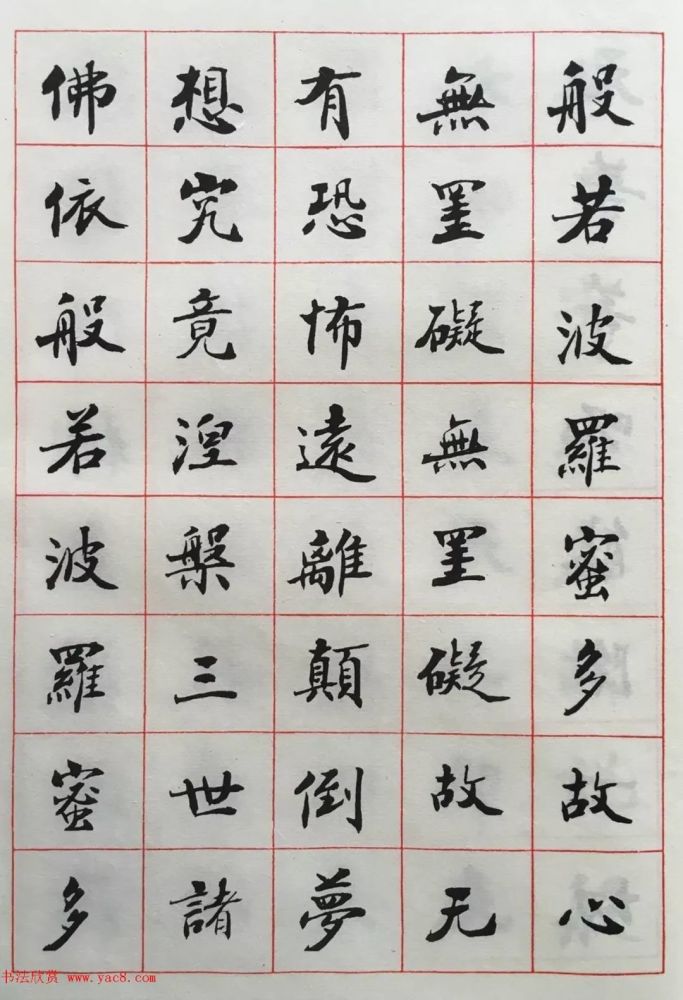 般若波羅蜜多故心
無罣礙無罣礙故无
有恐怖遠離顛倒夢
想究竟涅槃三世諸
佛依般若波羅蜜多
书法欣赏 www.yac8.com